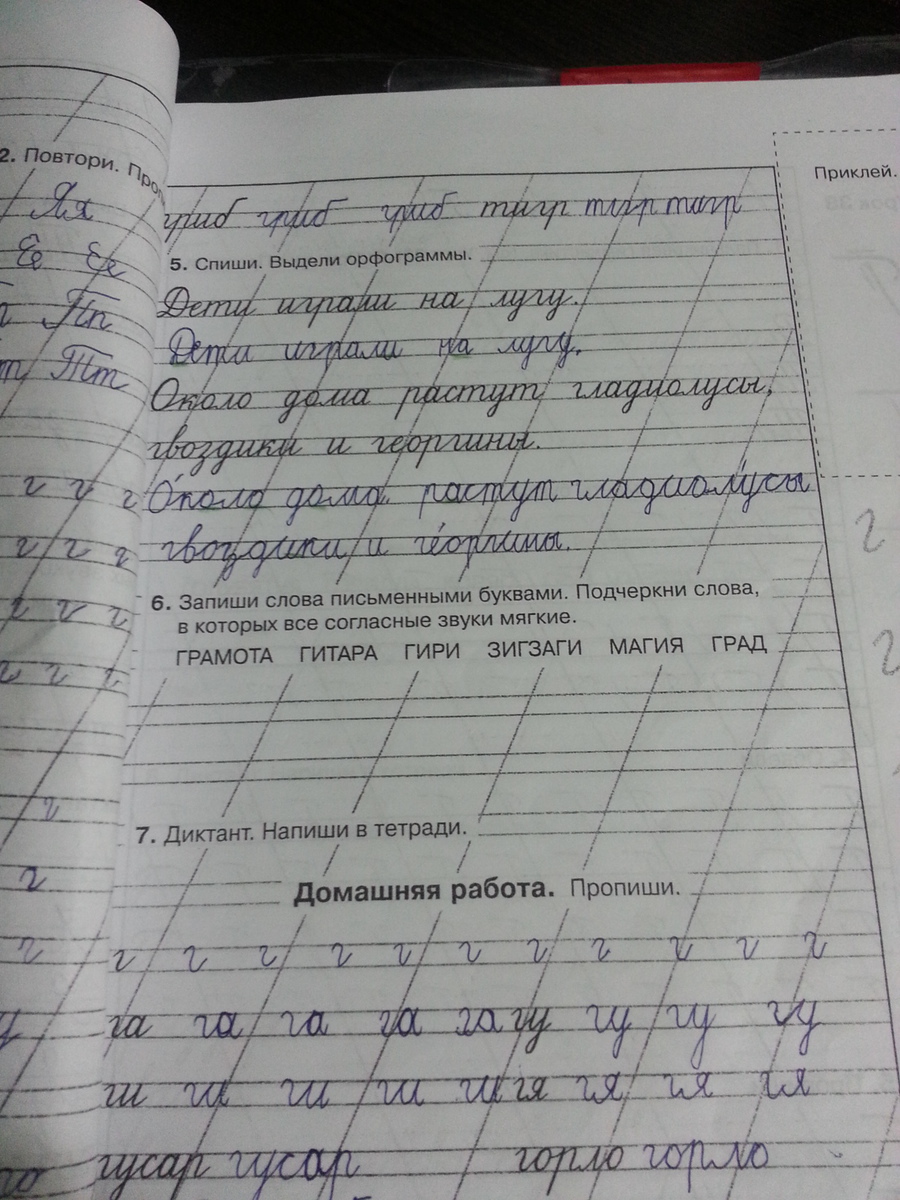 2. Повтори.
Яя
Ее Ее
Пп
Тт
г г г
г г г
г г г
г г г
г
г
г
Приклей.
гриб гриб гриб тигр тигр тигр
5. Спиши. Выдели орфограммы.
Дети играли на лугу.
Дети играли на лугу.
Около дома растут гладиолусы,
гвоздики и георгины.
О́коло дома растут гладио́лусы
гвоздики и гео́ргины.
г
г
6. Запиши слова письменными буквами. Подчеркни слова,
в которых все согласные звуки мягкие.
ГРАМОТА ГИТАРА ГИРИ ЗИГЗАГИ МАГИЯ ГРАД
7. Диктант. Напиши в тетради.
Домашняя работа. Пропиши.
г г г г г г г г г г г
га га га га га гу гу гу гу
ги ги ги ги ги гя гя гя гя
гусар гусар горло горло